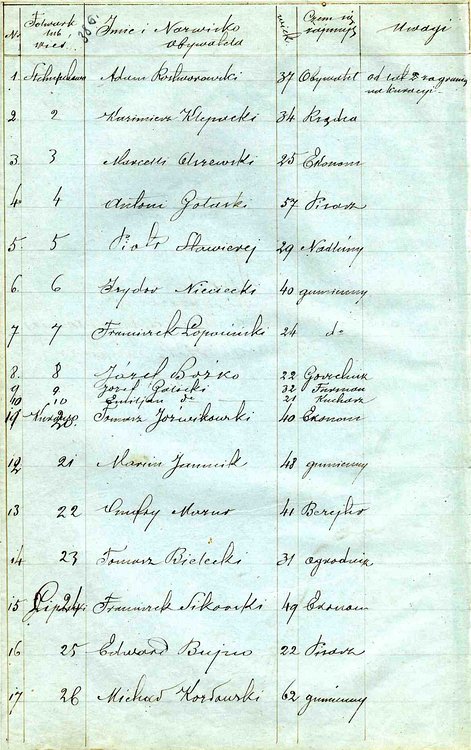 No Folwark lub wieś 386 Imie i Nazwisko Obywatela wiek Czem się zajmuje Uwagi
1 Adam 37 Obywatel od lat 2 zagranicą na kuracyi
2 2 Kazimierz 34 Rządca
3 3 Marceli Olszewski 25 Ekonom
4 4 Antoni Gotarski 57 Pisarz
5 5 Piotr 29 Nadleśny
6 6 Izydor Nieciecki 40 gumienny
7 7 Franciszek Łopaciński 24 do
8 8 Józef Bożko 22 Gorzelnik
9 9 Józef 32 Furman
10 10 Emiljan do 21 Kucharz
11 20 Tomasz Jóźwikowski 40 Ekonom
12 21 Marcin 48 gumienny
13 22 Onufry Mazur 41
14 23 Tomasz Bielecki 31 ogrodnik
15 24 Franciszek Sikorski 49 Ekonom
16 25 Edward Bujno 22 Pisarz
17 26 Michał Kozłowski 62 gumienny